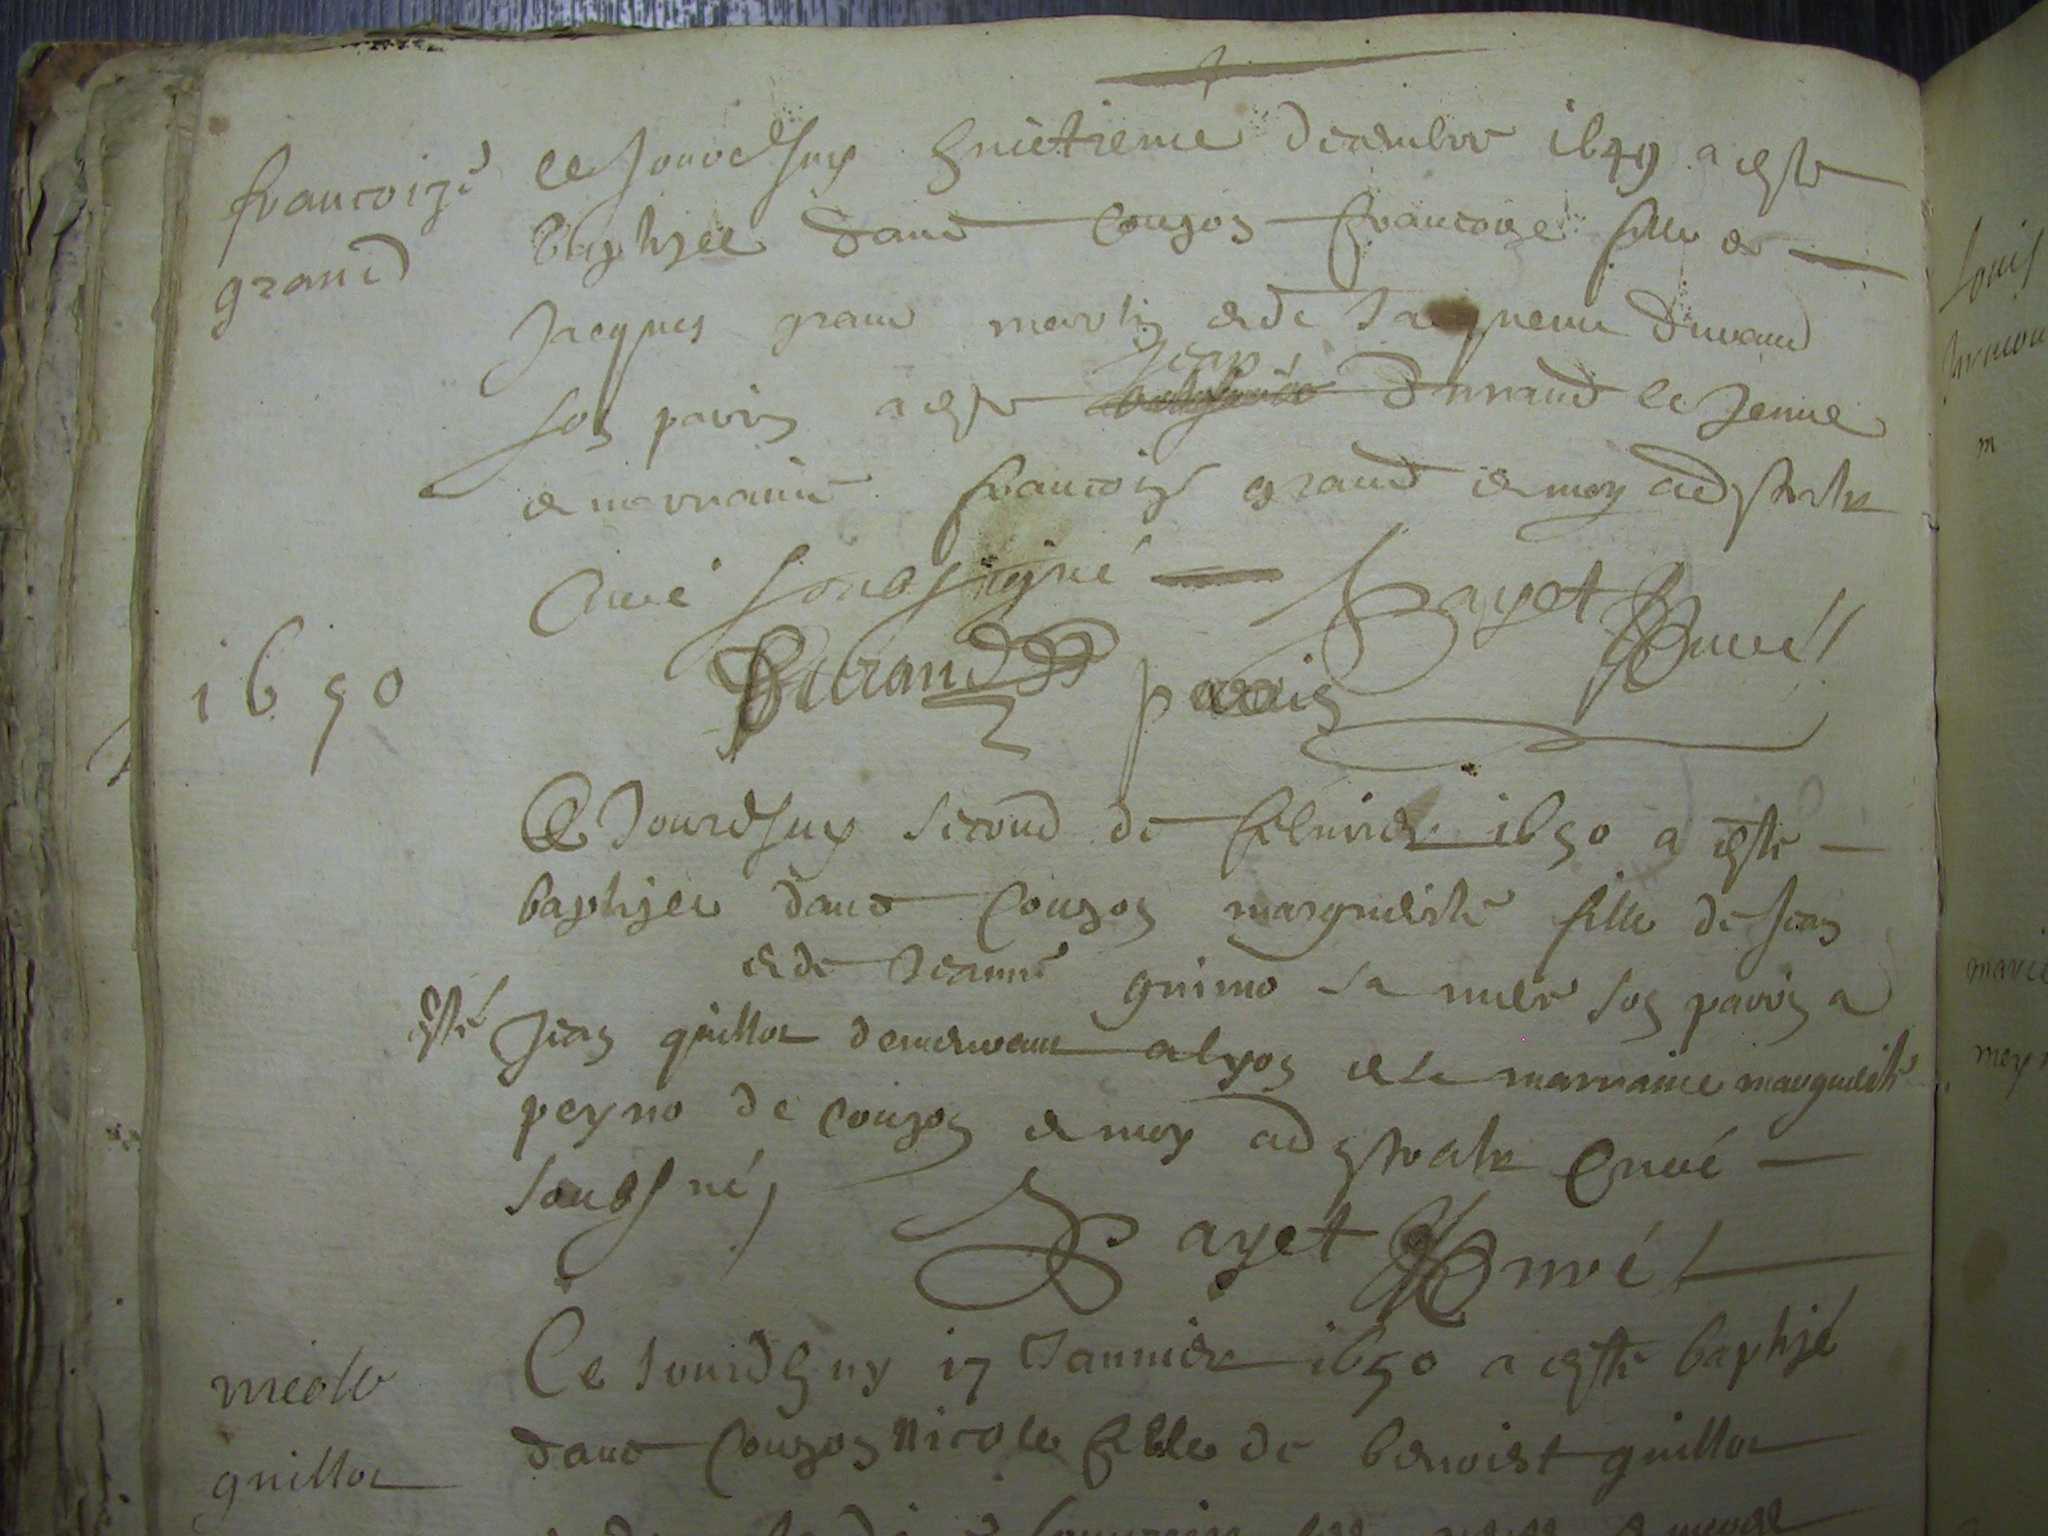 francoize
grand
ce Jourdhuy huictieme decembre 1649 a este
baptizee dans Couzon francoize fille de
Jacques grand martin et de Jacqueme durand
son parin a este Jean durand le Jeune
et marraine francoize grand et moy administr
Curé soubsigné
Bayet Curé
Durand parrin
1650
Ce Jourdhuy second de febvrier 1650 a este
baptizee dans Couzon marguerite fille de Jean
et de Jeanne guimo sa mere son parin a
esté Jean guillot demeurant a lyon et la marraine marguerite
peyno de couzon et moy administr Curé
soubsné
Bayet Curé
nicolle
guillot
Ce Jourdhuy 17 Janvier 1650 a este baptizé
dans Couzon Nicole fille de benoist guillot
Louis
marie